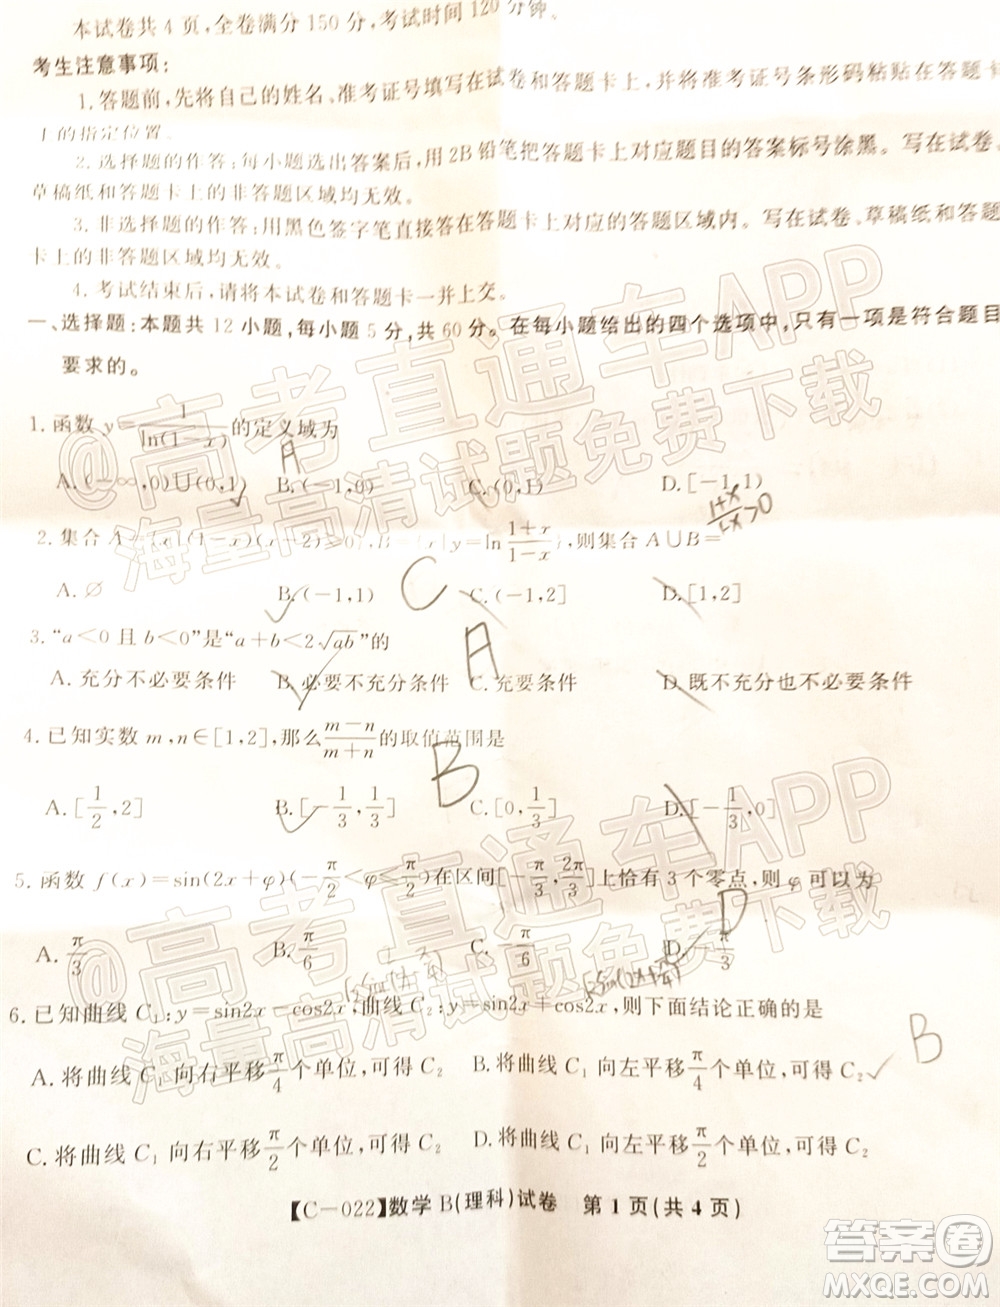 本试卷共4页,全卷满分150分,考试时间120分钟。
考生注意事项:
1.答题前,先将自己的姓名、准考证号填写在试卷和答题卡上,并将准考证号条形码粘贴在答题卡
上的指定位置。
2.选择题的作答:每小题选出答案后,用2B铅笔把答题卡上对应题目的答案标号涂黑。写在试卷、
草稿纸和答题卡上的非答题区域均无效。
3.非选择题的作答:用黑色签字笔直接答在答题卡上对应的答题区域内。写在试卷、草稿纸和答题
卡上的非答题区域均无效。
4.考试结束后,请将本试卷和答题卡一并上交。
一、选择题:本题共12小题,每小题5分,共60分。在每小题给出的四个选项中,只有一项是符合题目
要求的。
1.函数 y=1/ln(1-x)的定义域为 A
A.(-∞,0)∪(0,1) B.(-1,0) C.(0,1) D.[-1,1)
(1+x)/(1-x)>0
2.集合A={x|(1-x)(x-2)≥0},B={x|y=ln (1+x)/(1-x)},则集合A∪B= C
A.∅ B.(-1,1) C.(-1,2] D.[1,2]
3.“a<0且b<0”是“a+b<2√ab”的 A
A.充分不必要条件 B.必要不充分条件 C.充要条件 D.既不充分也不必要条件
4.已知实数m,n∈[1,2],那么(m-n)/(m+n)的取值范围是 B
A.[1/2,2] B.[-1/3,1/3] C.[0,1/3] D.[-1/3,0]
5.函数 f(x)=sin(2x+φ)(-π/2<φ≤π/2)在区间[-π/3,2π/3]上恰有3个零点,则φ可以为 D
A.π/3 B.π/6 C.-π/6 D.-π/3
6.已知曲线C₁:y=sin2x-cos2x,曲线C₂:y=sin2x+cos2x,则下面结论正确的是 B
A.将曲线C₁向右平移π/4个单位,可得C₂ B.将曲线C₁向左平移π/4个单位,可得C₂
C.将曲线C₁向右平移π/2个单位,可得C₂ D.将曲线C₁向左平移π/2个单位,可得C₂
【C-022】数学B(理科)试卷 第1页(共4页)
@高考直通车APP
海量高清试题免费下载
@高考直通车APP
海量高清试题免费下载
答案圈
MXQE.COM